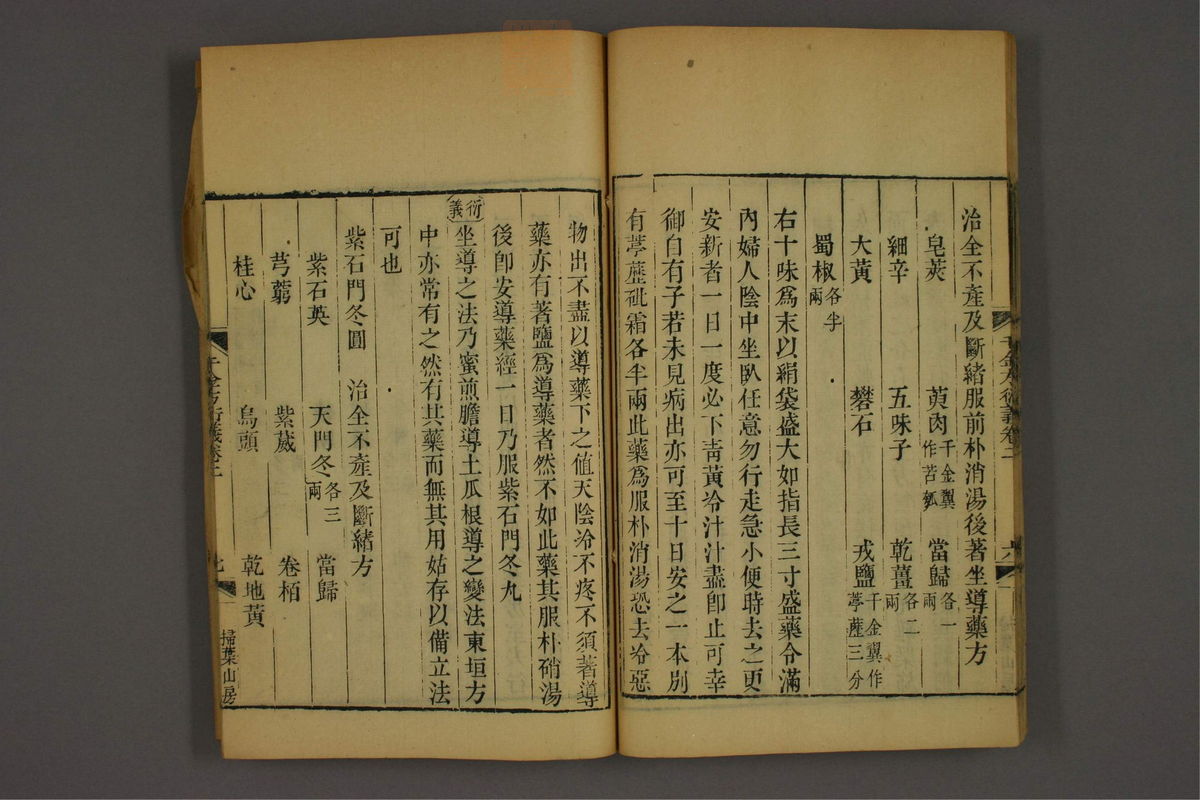 治全不產及斷緒服前朴消湯後著坐導藥方
皂莢 萸肉千金翼作苦瓠 當歸各一兩
細辛 五味子 乾薑各二兩
大黃 礬石 戎鹽千金翼作葶藶三分
蜀椒各半兩
右十味爲末以絹袋盛大如指長三寸盛藥令滿
內婦人陰中坐臥任意勿行走急小便時去之更
安新者一日一度必下靑黃冷汁汁盡卽止可幸
御自有子若未見病出亦可至十日安之一本別
有葶藶砒霜各半兩此藥爲服朴消湯恐去冷惡
物出不盡以導藥下之值天陰冷不疼不須著導
藥亦有著鹽爲導藥者然不如此藥其服朴硝湯
後卽安導藥經一日乃服紫石門冬丸
衍義
坐導之法乃蜜煎膽導土瓜根導之變法東垣方
中亦常有之然有其藥而無其用姑存以備立法
可也
紫石門冬圓 治全不產及斷緒方
紫石英 天門冬各三兩 當歸
芎藭 紫葳 卷栢
桂心 烏頭 乾地黃
千金方衍義卷二
掃葉山房